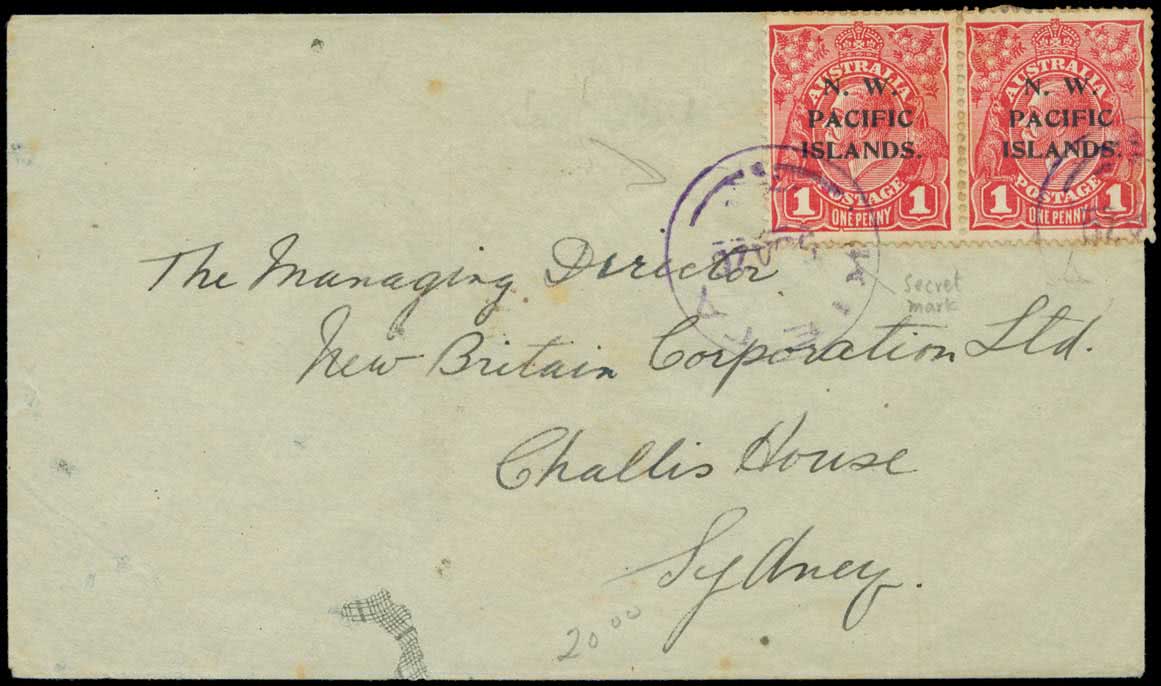 AUSTRALIA
N. W.
PACIFIC
ISLANDS.
POSTAGE
1 ONE PENNY 1
AUSTRALIA
N. W.
PACIFIC
ISLANDS.
POSTAGE
1 ONE PENNY 1
The Managing Director
secret
mark
New Britain Corporation Ltd.
Challis House
Sydney.
20 00